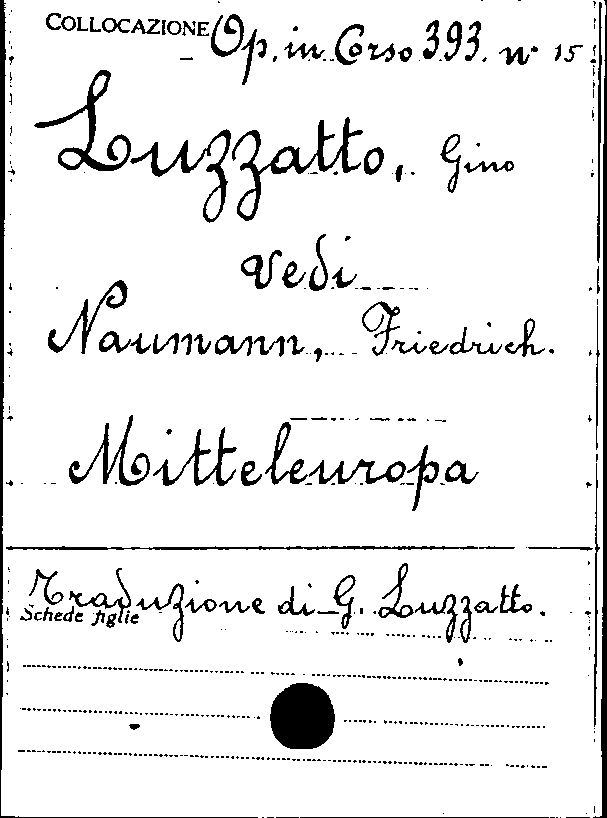 COLLOCAZIONE Op. in Corso 393. n° 15
Luzzatto, Gino
vedi
Naumann, Friedrich.
Mitteleuropa
Traduzione di G. Luzzatto.
Schede figlie